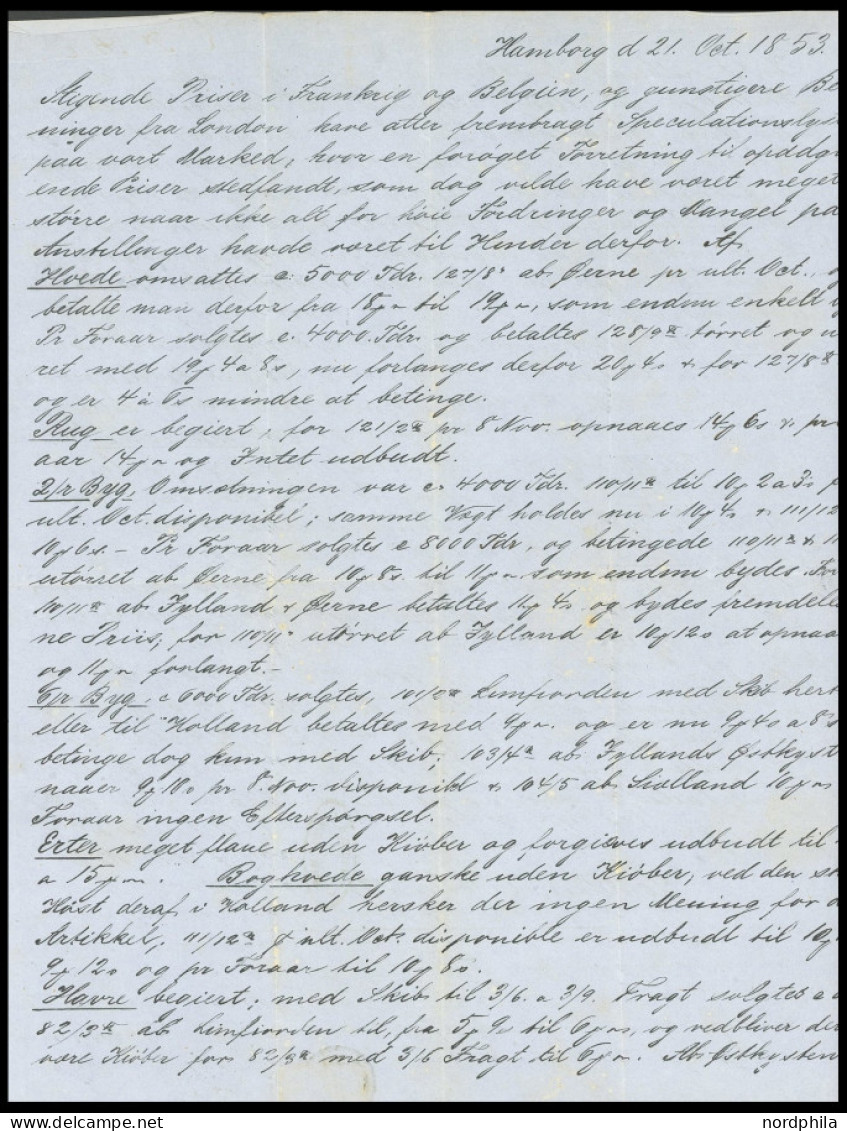 Hamborg d 21. Oct. 1853.
Stigende Priser i Frankrig og Belgien, og gunstigere Be
ninger fra London have atter frembragt Speculationslys
paa vort Marked, hvor en forøget Forretning til opadg
ende Priser stedfandt, som dog vilde have været meget
større naar ikke alt for høie Fordringer og Mangel pa
Anstillinger havde været til Hinder derfor. Af
Hvede omsattes c. 5000 Tdr. 127/8 ab Øerne pr ult. Oct.,
betalte man derfor fra 18 til 19, som endnu enkelt
Pr Foraar solgtes c. 4000 Tdr. og betaltes 128/9 tørret og u
ret med 19 4 a 8s, nu forlanges derfor 20 4s & for 127/8
og er 4 à 6s mindre at betinge.
Rug er begiert, for 121/2 pr 8 Nov. opnaaes 14 6s & pr
aar 14 og Intet udbudt.
2/r Byg, Omsætningen var c. 4000 Tdr. 110/11 til 10 2 a 3s
ult. Oct. disponibel; samme Vægt holdes nu i 10 4s & 111/12
10 6s. – Pr Foraar solgtes c 8000 Tdr, og betingede 110/11 &
utørret ab Øerne fra 10 8s. til 11 som endnu bydes. For
110/11 ab Jylland & Øerne betaltes 11 4s og bydes fremdeles
ne Priis, for 110/11 utørret ab Jylland er 10 12s at opnaa
og 11 forlangt.–
6/r Byg, c 6000 Tdr. solgtes, Limfiorden med Skib her
eller til Holland betaltes med 9. og er nu 9 4s a 8s
betinge dog kun med Skib; 103/4 ab Jyllands Østkyst
naaer 9 10s pr 8. Nov. disponibl & 104/5 ab Siælland 10
Foraar ingen Efterspørgsel.
Erter meget flaue uden Kiøber og forgieves udbudt til
a 15. Boghvede ganske uden Kiøber, ved den
Høst deraf i Holland hersker der ingen Mening for
Artikkel, 111/12 ult. Oct. disponible er udbudt til 10
9 12s og pr Foraar til 10 8s.
Havre begiert; med Skib til 3/6. a 3/9. Fragt solgtes
82/3 ab Limfiorden til, fra 5 9s til 6, og vedbliver der
være Kiøber for 82/3 med 3/6 Fragt til 6. Ab Østkysten
www.nordphila.com
nordphila